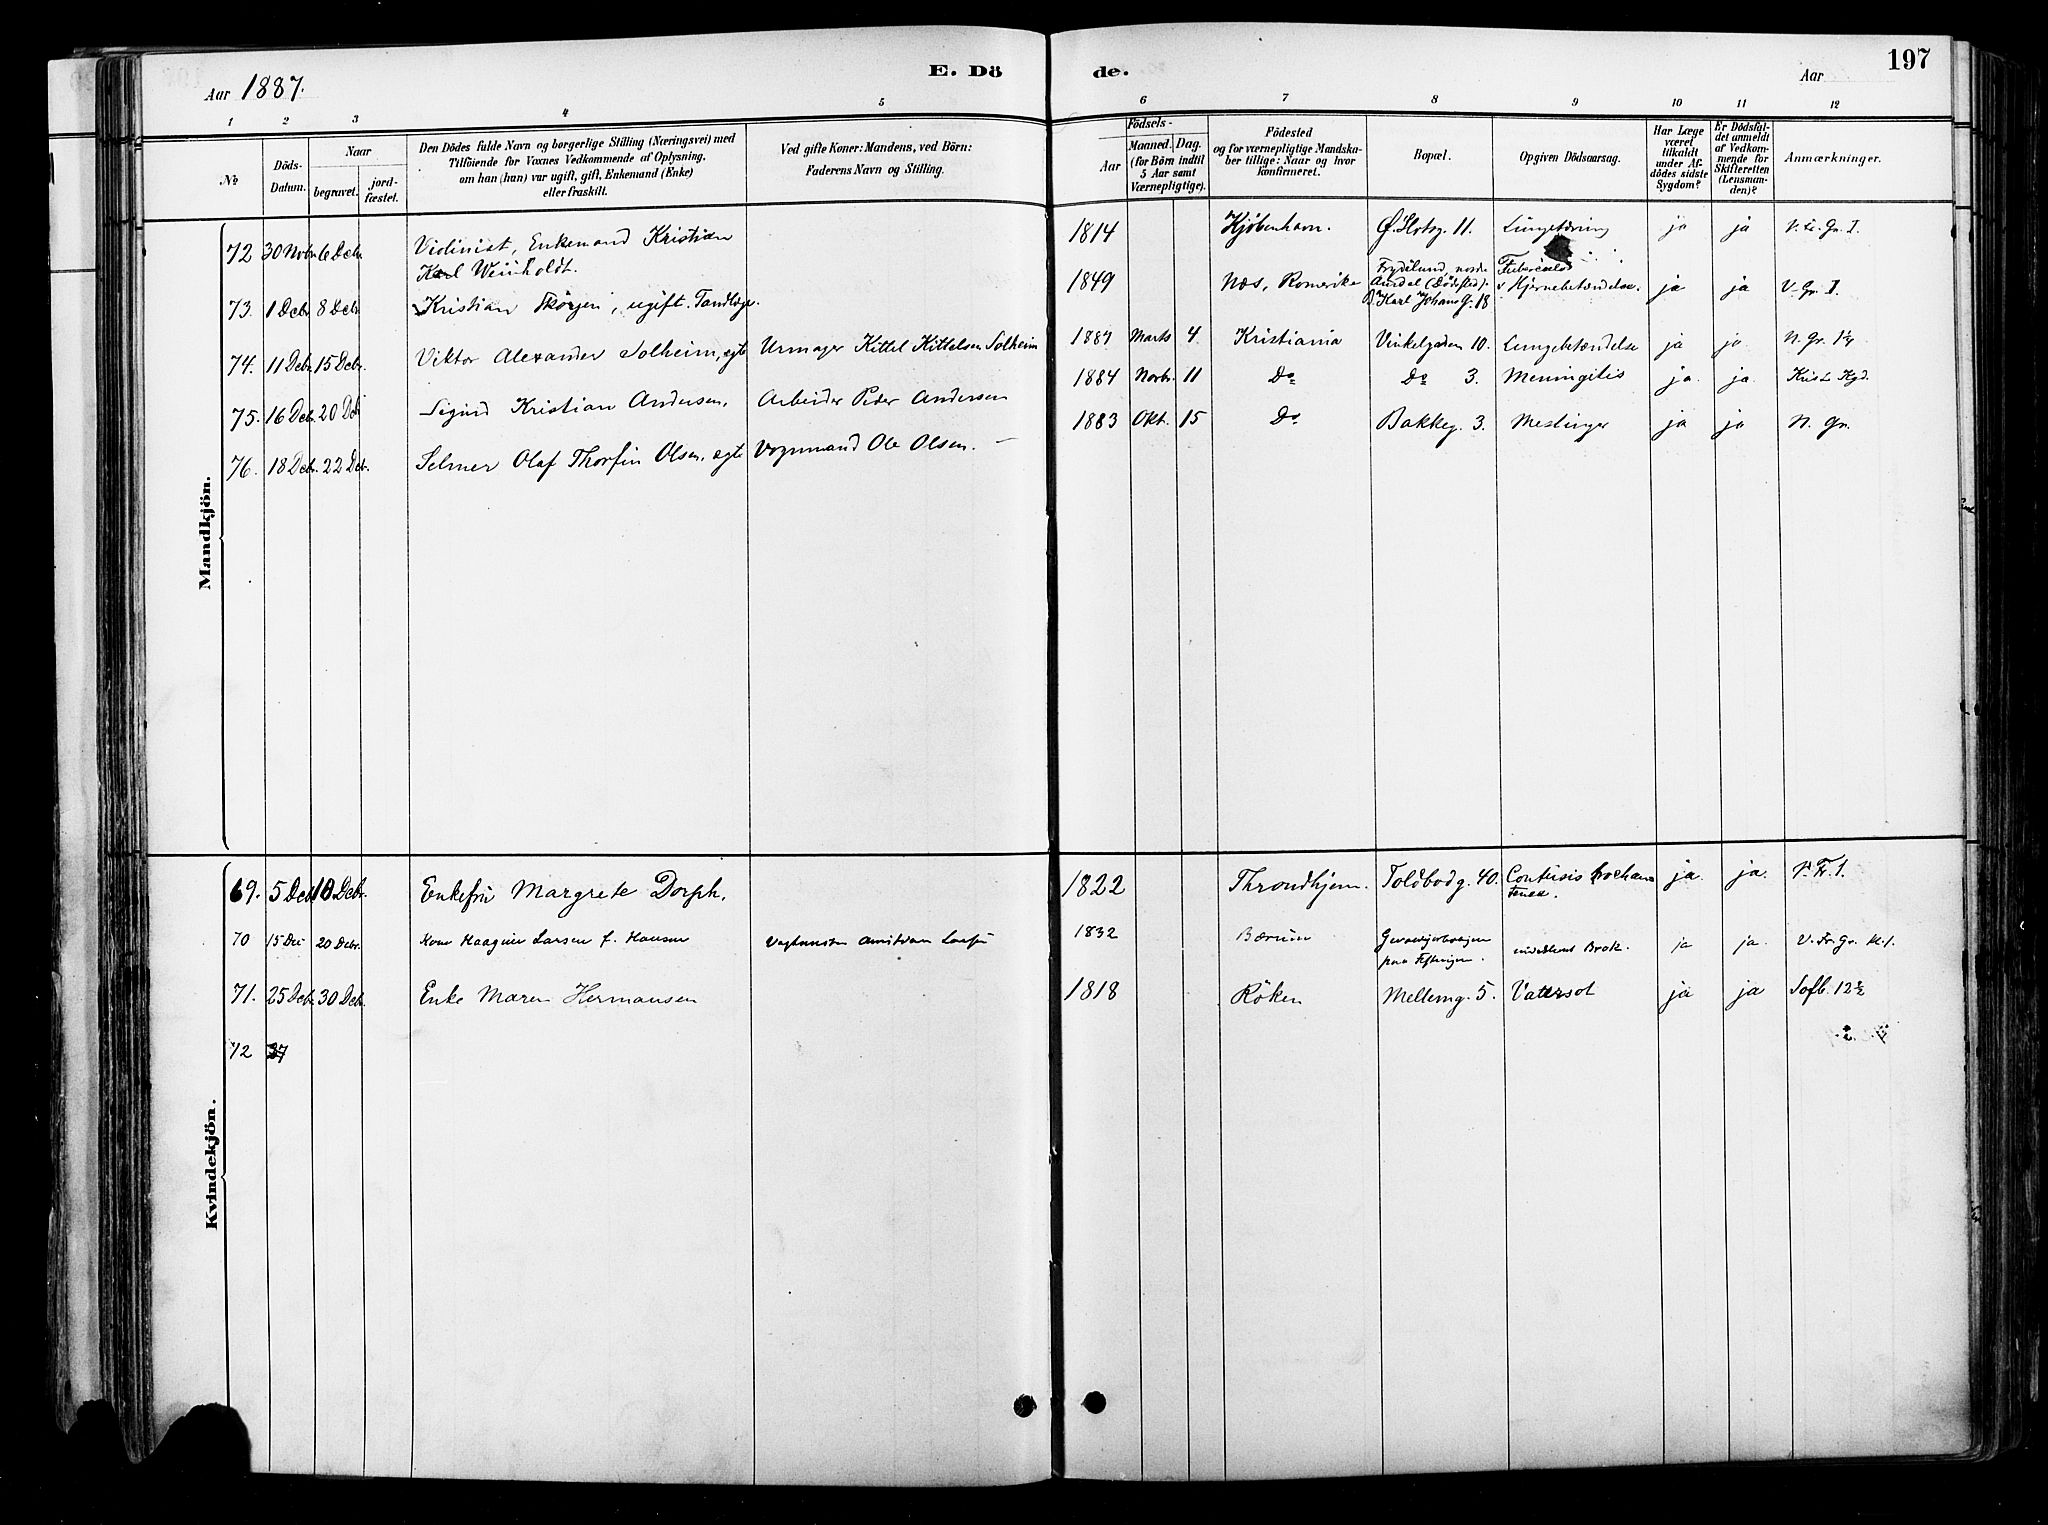 197
E. Dö de.
Aar 1887.
Aar
1 2 3 4 5 6 7 8 9 10 11 12
No
Döds-
Datum.
Naar
begravet.
jord-
fæstet.
Den Dödes fulde Navn og borgerlige Stilling (Næringsvei) med
Tilföiende for Voxnes Vedkommende af Oplysning,
om han (hun) var ugift, gift, Enkemand (Enke)
eller fraskilt.
Ved gifte Koner: Mandens, ved Börn:
Faderens Navn og Stilling.
Födsels-
Aar
Maaned. Dag.
(for Börn indtil
5 Aar samt
Værnepligtige).
Födested
og for værnepligtige Mandska-
ber tillige: Naar og hvor
konfirmeret.
Bopæl.
Opgiven Dödsaarsag.
Har Læge
været
tilkaldt
under Af-
dödes sidste
Sygdom?
Er Dödsfal-
det anmeldt
af Vedkom-
mende for
Skifteretten
(Lensman-
den)?
Anmærkninger.
Mandkjön.
72 30 Novbr. 6 Decbr. Violinist, Enkemand Kristian
Karl Weinholdt. 1814 Kjöbenhavn. Ø. Slotsg. 11. Lungetæring ja ja
73. 1 Decbr. 8 Decbr. Kristian Skörjen, ugift. Tandlæge. 1849 Næs, Romerike Frydslund, nordre
Aurdal (Dödsted).
Karl Johans G. 18 Hjernebetændelse. ja ja V. Gr. I.
74. 11 Decbr. 15 Decbr. Viktor Alexander Solheim, egte Urmager Kittel Kittelsen Solheim 1887 Marts 4. Kristiania Vinkelgaden 10. Lungebetændelse ja ja. N. Gr.
75. 16 Decbr. 20 Decbr Sigurd Kristian Andersen. Arbeider Peder Andersen 1884 Novbr. 11 Do Do 3. Meningitis ja. ja.
76. 18 Decbr. 22 Decbr. Selmer Olaf Thorfin Olsen, egte Vognmand Ole Olsen. — 1883 Okt. 15 Do Bakkeg. 3. Meslinger ja ja N. Gr.
Kvindekjön.
69. 5 Decbr 10 Decbr. Enkefru Margrete Dorph. 1822 Throndhjem. Toldbodg. 40. Contusis ja ja. V. Fr. 1.
70 15 Dec 20 Decbr. Kone Larsen f. Hansen 1832 Bærum
paa Fæstningen. indeklemt Brok. ja ja. V. Fr. Gr. Kl. 1.
71. 25 Decbr. 30 Decbr. Enke Maren Hermansen 1818 Röken Mellemg. 5. Vattersot ja ja Sofb. 12
72 27